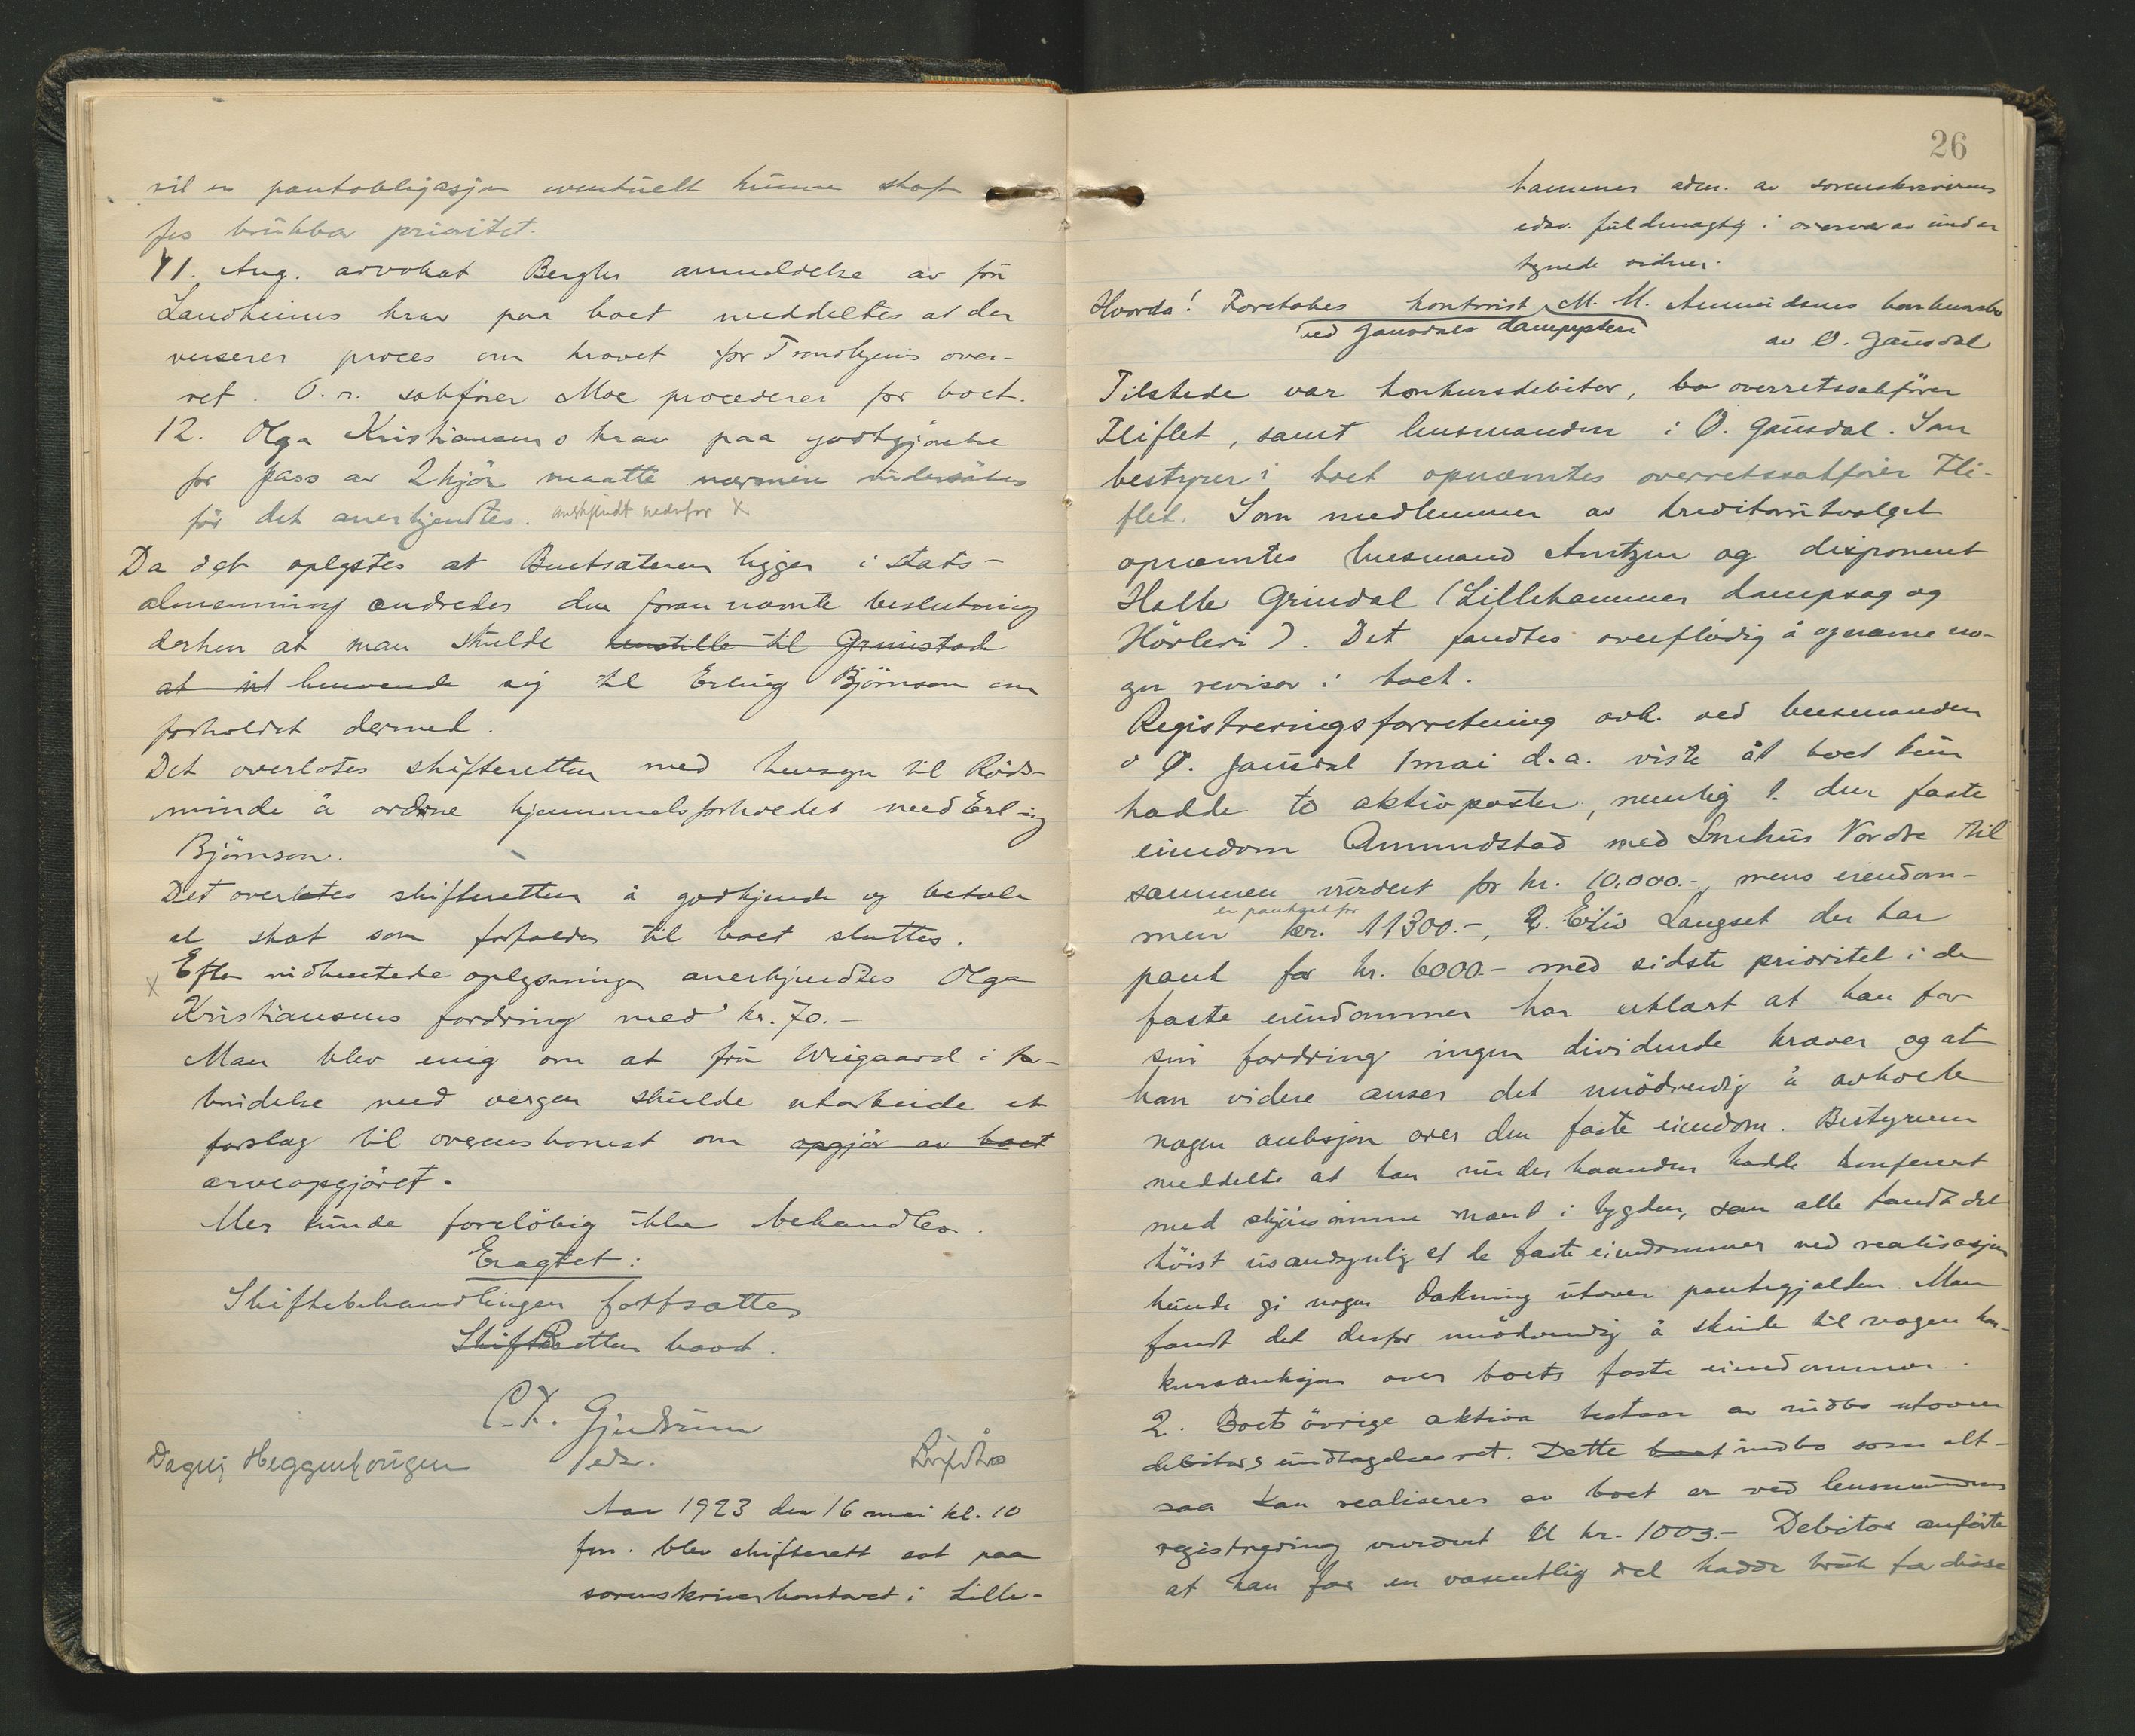 vil en pantobligasjon eventuelt kunne skaf-
fes brukbar prioritet.
11. Ang. advokat Berghs anmeldelse av fru
Landheims krav paa boet meddeltes at der
verserer proces om kravet for Trondhjems over-
ret. O.r. sakfører Moe procederer for boet.
12. Olga Kristiansens krav paa godtgjørelse
for pass av 2 kjör maatte nærmere undersökes
för det anerkjendtes. anerkjendt nedenfor X
Da det oplystes at sæteren ligger i stats-
almenning ændredes den foran nævnte beslutning
derhen at man skulde henstille til Grimstad
at henvende sig til Erling Björnson om
forholdet dermed.
Det overlotes skifteretten med hensyn til
minde å ordne hjemmelsforholdet med Erling
Björnson.
Det overlotes skifteretten å godkjende og betale
al skat som forfalder til boet sluttes.
X Efter indhentede oplysninger anerkjendtes Olga
Kristiansens fordring med kr. 70.-
Man blev enig om at fru Wiegaard i for-
bindelse med vergen skulde utarbeide et
forslag til overenskomst om opgjör av boet
arveopgjöret.
Mer kunde foreløbig ikke behandles.
Eragtet:
Skiftebehandlingen fortsættes
Skifteretten hævet.
C.F. Gjerdrum
edsv.
Dagny Heggenhougen
Aar 1923 den 16 mai kl. 10
fm. blev skifterett sat paa
sorenskriverkontoret i Lille-
26
hammer adm. av sorenskriverens
edsv. fuldmægtig i overvær av under
tegnede vidner.
Hvorda! Foretokes kontorist M. M. Amundsens konkursbo
ved Gausdals dampysteri av Ö. Gausdal
Tilstede var konkursdebitor, overretssakförer
Fliflet, samt lensmanden i Ö. Gausdal. Som
bestyrer i boet opnævntes overretssakfører Fli-
flet. Som medlemmer av kreditorutvalget
opnævntes lensmand Arntzen og disponent
Halle Grindal (Lillehammer Dampsag og
Hövleri). Det fandtes overflödig å opnævne no-
gen revisor i boet.
Registreringsforretning avh. ved lensmanden
i Ö. Gausdal 1 mai d.a. viste at boet kun
hadde to aktivposter, nemlig 1. den faste
eiendom Amundstad med Snehus Nordre til
sammen vurdert for kr. 10.000.-, mens eiendom-
men er pantsat for kr. 11300.-, Eiliv Langset der har
pant for kr. 6000.- med sidste prioritet i de
faste eiendommer har erklært at han for
sin fordring ingen dividende kræver og at
han videre anser det unödvendig å avholde
nogen auksjon over den faste eiendom. Bestyreren
meddelte at han underhaanden hadde konferert
med skjönsomme mænd i bygden, som alle fandt det
höist usandsynlig at de faste eiendommer ved realisasjon
kunde gi nogen dækning utover pantegjælden. Man
fandt det derfor unödvendig å skride til nogen kon-
kursauksjon over boets faste eiendommer.
2. Boets övrige aktiva bestaar av indbo utover
debitors undtagelsesret. Dette boet indbo som alt-
saa kan realiseres av boet er ved lensmandens
registrering vurdert til kr. 1003.- Debitor anförte
at han for en væsentlig del hadde bruk for disse